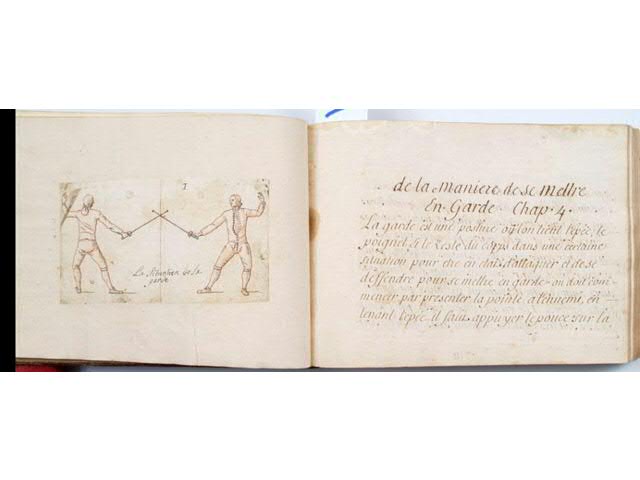 1
La Situation de la
garde
de la Maniere de se mettre
En Garde Chap. 4
La garde est une posture où l'on tient l'epée, le
poignet & le reste du corps dans une certaine
situation pour etre en etat d'attaquer et de se
deffendre pour se mettre en garde on doit com
mencer par presenter la pointe a l'ennemi, en
tenant l'epée il faut appuyer le pouce sur la